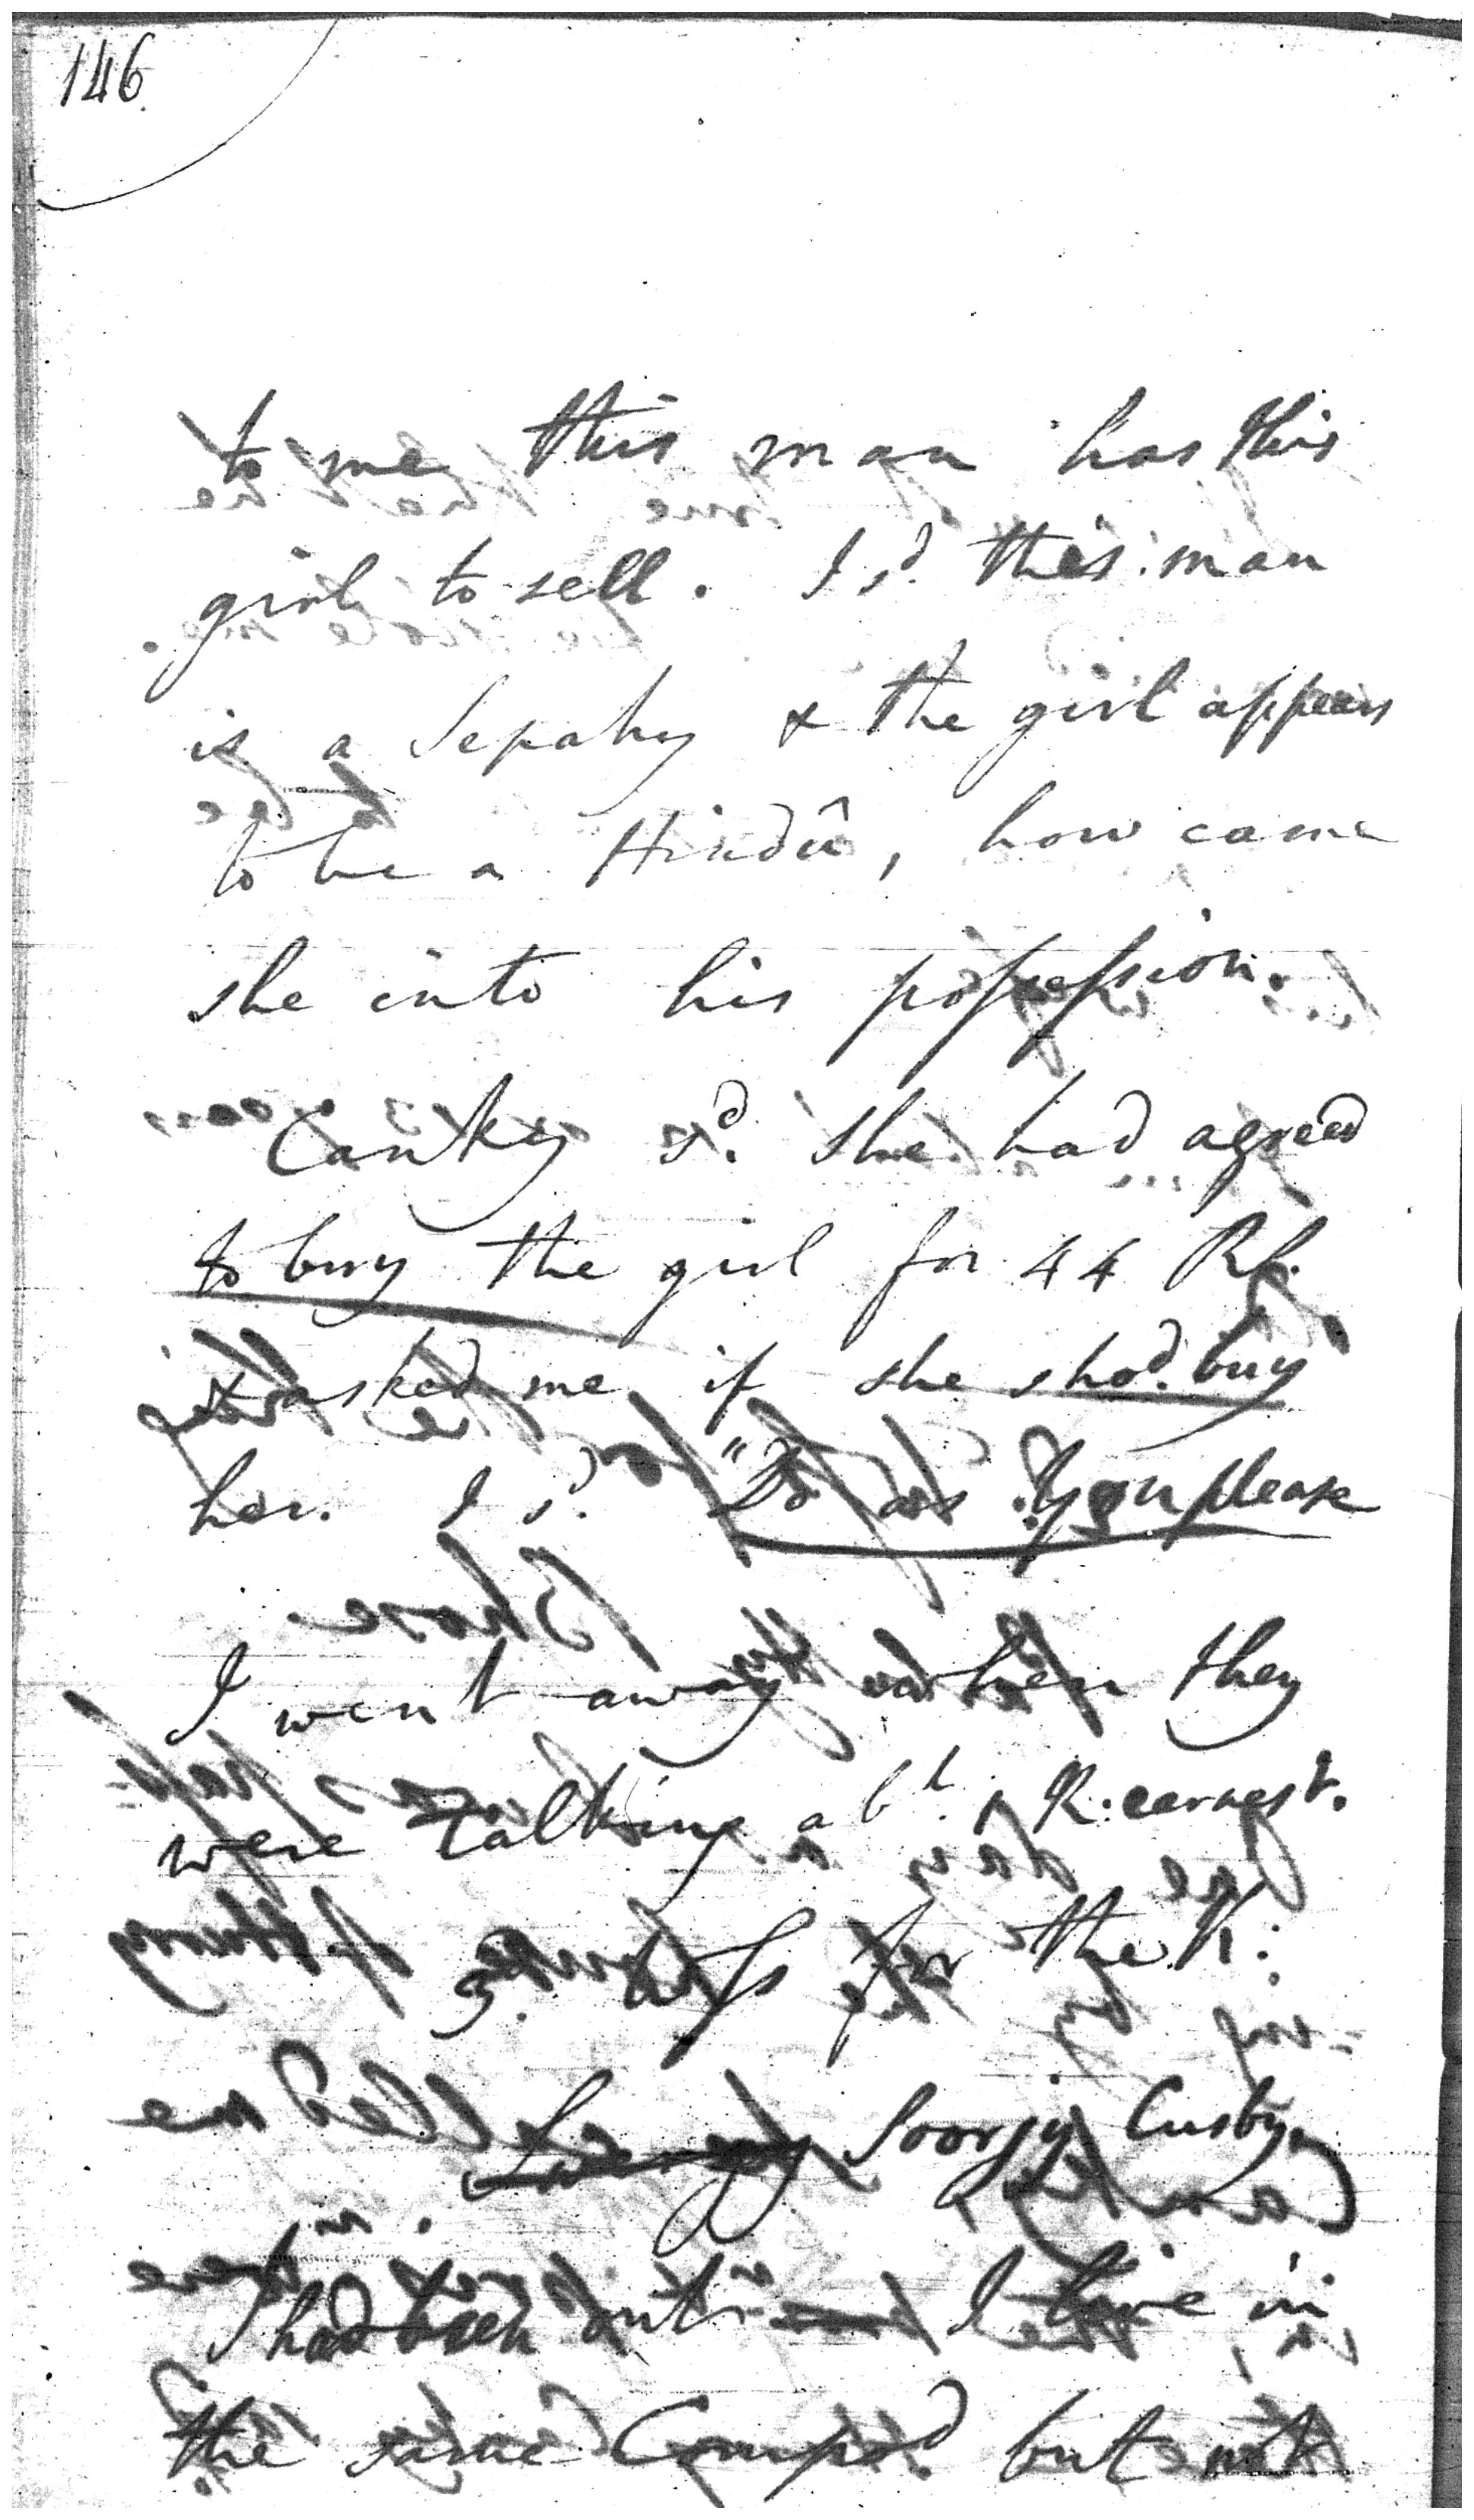 146.
to me this man has this
girl to sell. I sd. this man
is a Sepahy & the girl appears
to be a Hindû, how came
she into his possession.
Cantky sd. she had agreed
to buy the girl for 44 Rs.
& asked me if she shod. buy
her. I sd. "Do as you please
I went away when they
were talking abt. 1 R: earnest.
3. Wits for the K:
Soorjy Cusby.
I had been out I live in
the same Compod. but not